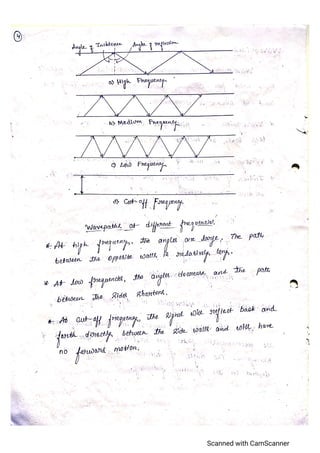 4
Angle of Incidence Angle of reflection
a) High Frequency
b) Medium Frequency
c) Low Frequency
d) Cut-off Frequency
"Wavepaths at different frequencies"
* At high frequency, the angles are large, The path
between the opposite walls is relatively long.
* At low frequencies, the angles decrease and the path
between the sides shortens.
* At cut-off frequency, the signal will reflect back and
forth directly between the side walls and will have
no forward motion.
Scanned with CamScanner